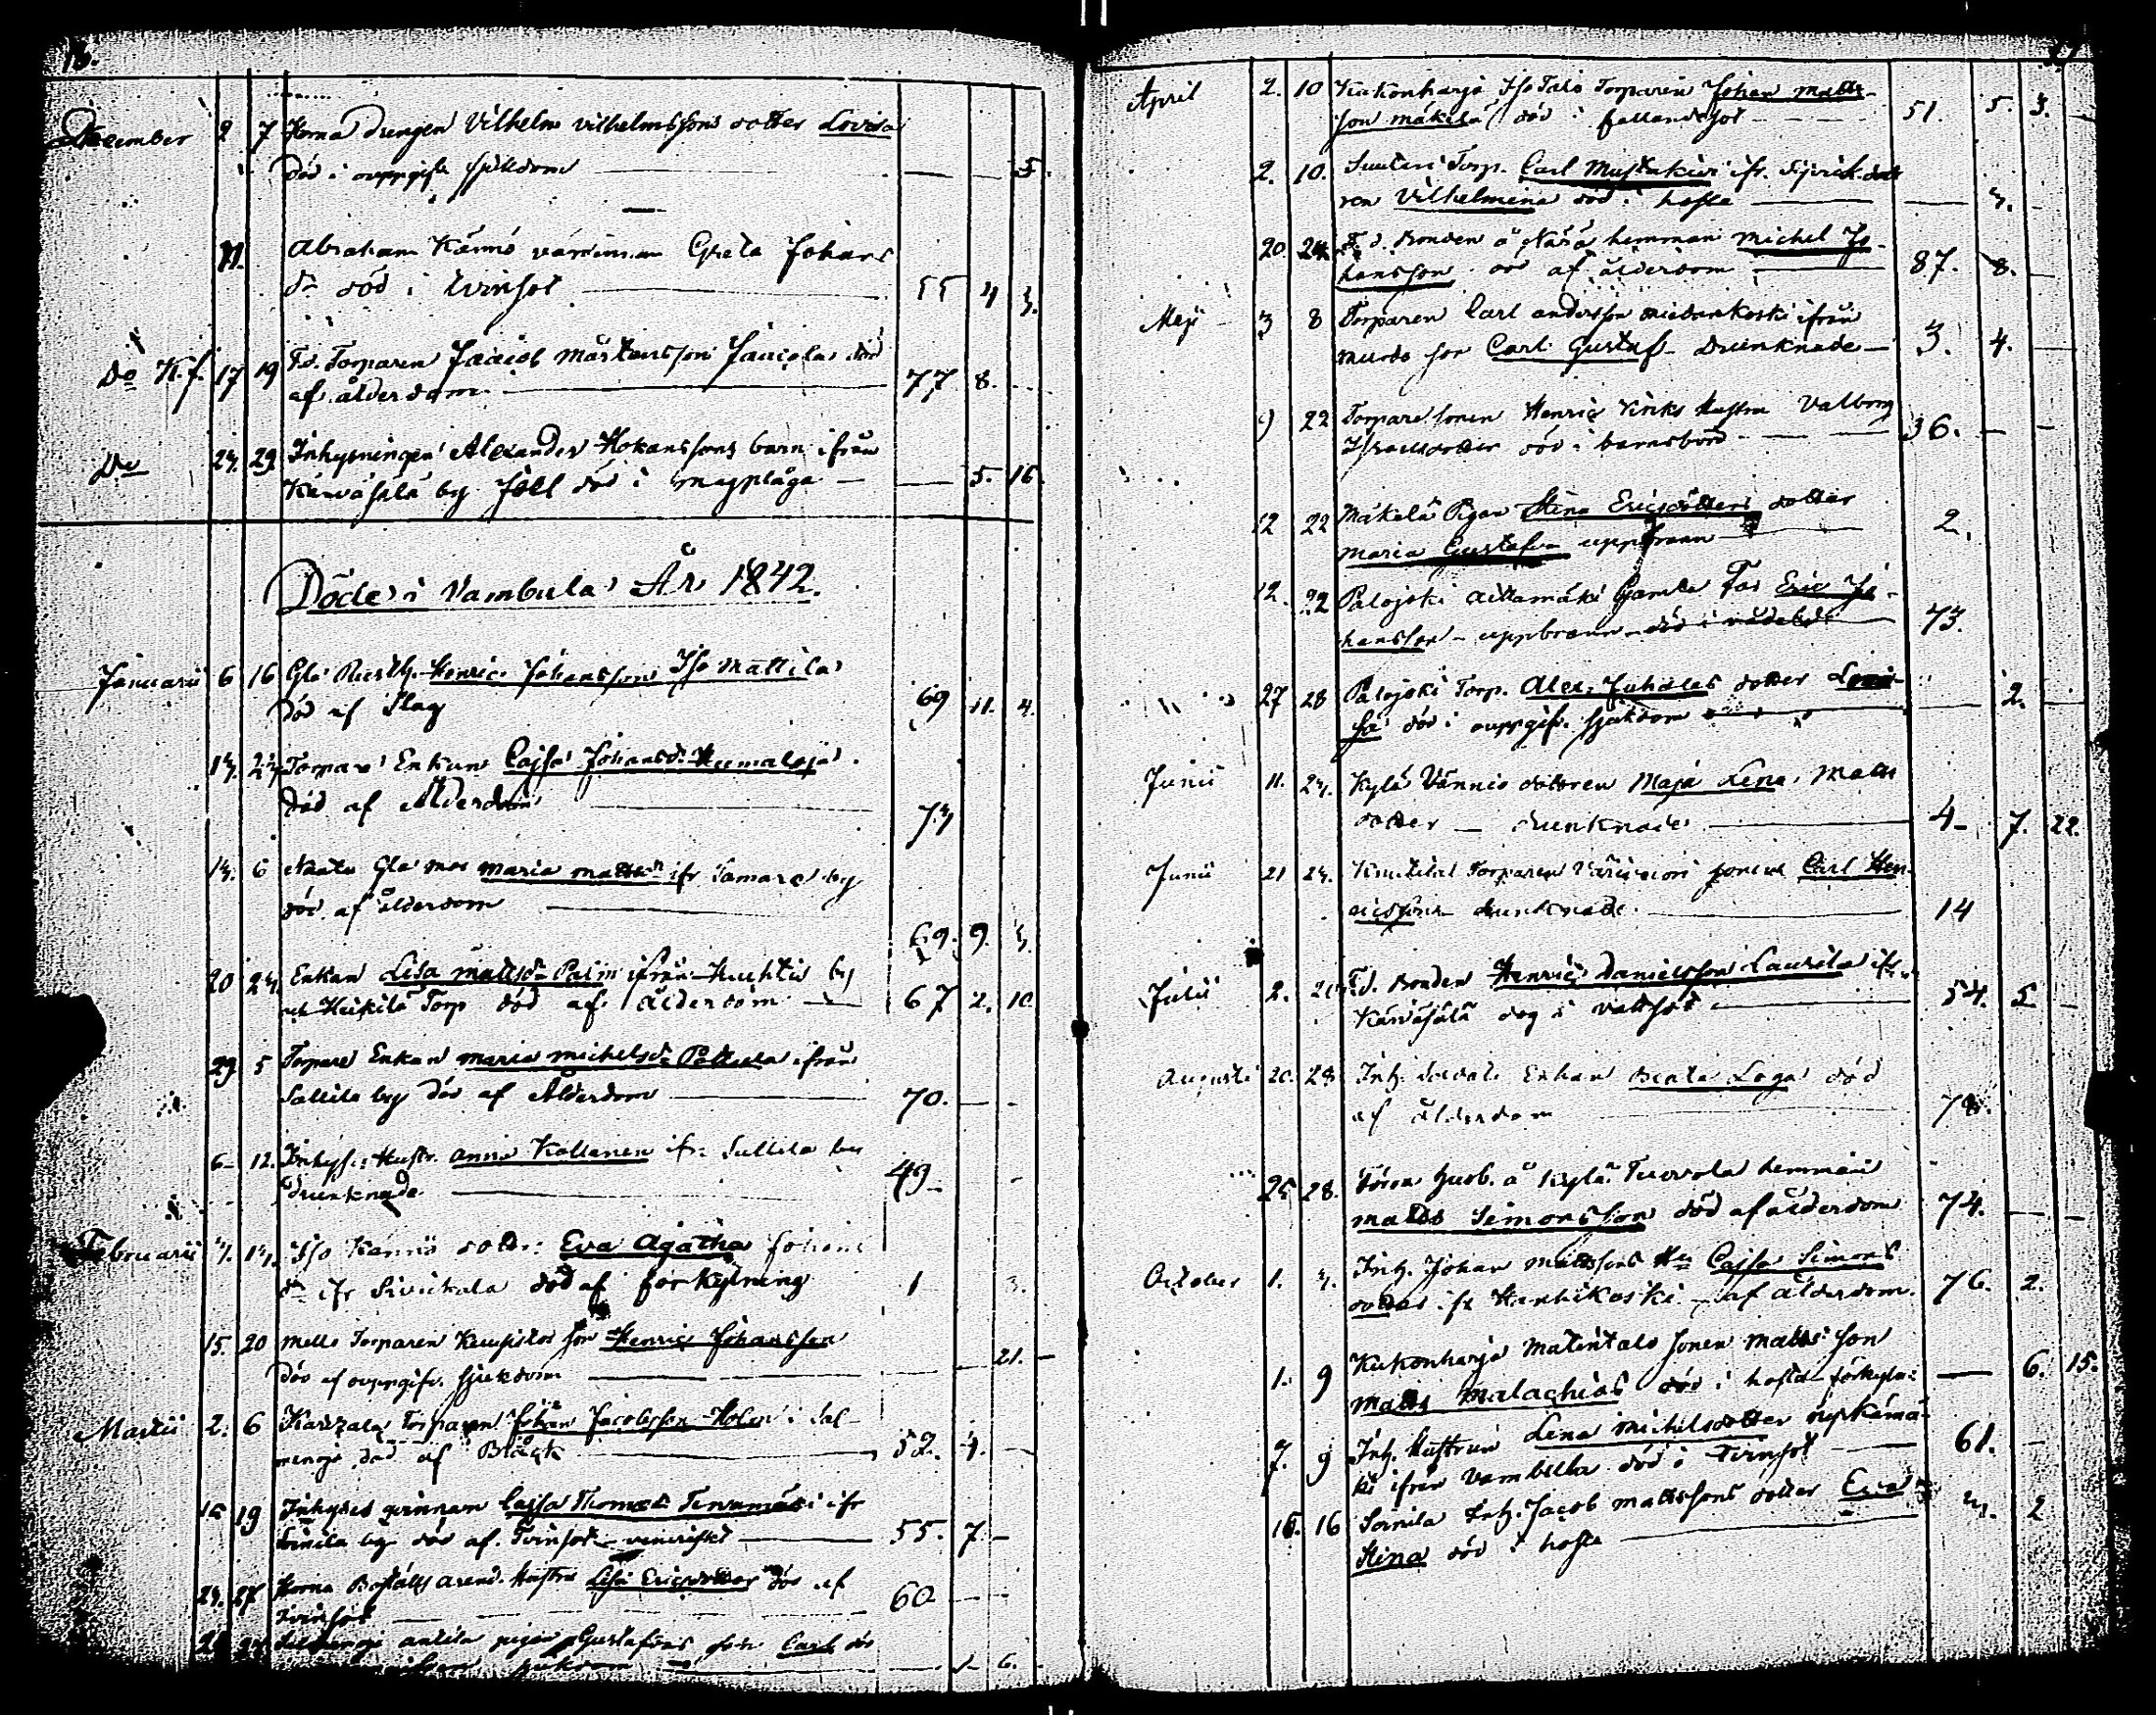 December 2 7 Horna Drengen Vilhelm Vilhelmssons dotter Lovisa
död i ouppgift sjukdom 5.
Abraham Kännö värdinnan Greta Johans
dr död i tvinsot 55 4 3.
Do 17 19 F.d. Torparen Jacob Mårtensson död
af ålderdom 77 8.
Do 24. 29. Inhysningen Alexander Hokanssons barn ifrån
by Joel död i magplåga 5. 16.
Döde i Vambula År 1842.
Januarii 6 16 Gla Rusth. Henric Johansson Iso Mattila
död af Slag 69 11. 4.
Torpare Enkan Cajsa Johansdr Humaloja
död af Ålderdom 74
14. 6 Gla mor Maria ifr Tamare by
död af ålderdom 69. 9. 3
20 24. Enkan Lisa Mattsdr Palm ifrån Huhtis by
Heikilä Torp död af ålderdom 67 2. 10.
29 5 Torpare Enkan Maria Michelsdr ifrån
Sallila by död af Ålderdom 70.
6 12. Inhyses Hustr. Anna Kallanen ifr. Sallila by
Drunknade 49
Februarii 4. 14. Iso Kännö dotter Eva Agatha Johans
dr ifr död af förkylning 1 3.
15. 20 Mells Torparen son Henric Johansson
död af ouppgifv. sjukdom 21.
Martii 2. 6 Torparen Johan Jacobsson Holm i Sal-
menoja död af 52. 4.
19 Inhyses qvinnan Cajsa Thomasdr ifr
by död af Tvinsot 55. 7.
24. 27 Horna Boställs arend. Hustru Lisa Ericsdotter död af
Tvinsot 60
pigan Gustafvas son Carl död
6.
April 2. 10 Kukonharja Iso Talo Torparen Johan Matts-
son Mäkilä död i fallandsot 51. 5. 3.
2. 10. Suutari Torp. Carl Mustakivi ifr. dott
ren Vilhelmina död i hosta 4.
20 24 F.d. Bonden å hemman Michel Jo-
hansson död af ålderdom 87. 8.
Maji 3 8 Torparen Carl Andersson ifrån
Murdo son Carl Gustaf Drunknade 3. 4.
9 22 Torpare sonen Henric Hustru Valborg
Israelsdotter död i barnsbörd 36.
12 22 Mäkelä Pigan Stina Ericsdotters dotter
Maria Gustafva uppbrann 2.
12. 22 Palojoki Aittamäki Gamla Far Eric Jo-
hansson - uppbrann död i vådeld 73.
27 28 Palojoki Torp. Alex. Juhalas dotter Lovi-
sa död i ouppgifv. sjukdom 2.
Junii 11. 24. Kylä Vännis dottren Maja Lena Matts
dotter drunknade 4 7. 22.
Junii 21 24. Torparen sonen Carl Hen-
ricsson drunknade 14
Julii 2. F.d. Bonden Henric Danielsson Laurila ifr.
dog i vattsot 54. 5
Augusti 20. 28. Inh. Soldats Enkan Beata Loga död
af ålderdom 78.
25 28. Förra Husb. å Kylä Tuvvola hemman
Matts Simonsson död af ålderdom 74.
October 1. 4. Inh. Johan Mattssons Hu Cajsa Simons
dotter ifr Hanhikoski af ålderdom. 76. 2.
1. 9 Kukonharja Matintalo sonen Matts son
Matts Malachias död i hosta förkyln: 6. 15.
7. 9 Inh. Hustrun Lena Michelsdotter Myrkämä-
ki ifrån död i Tvinsot 61.
16. 16 Inh. Jacob Mattssons dotter Eva
Stina död i hosta 4. 2